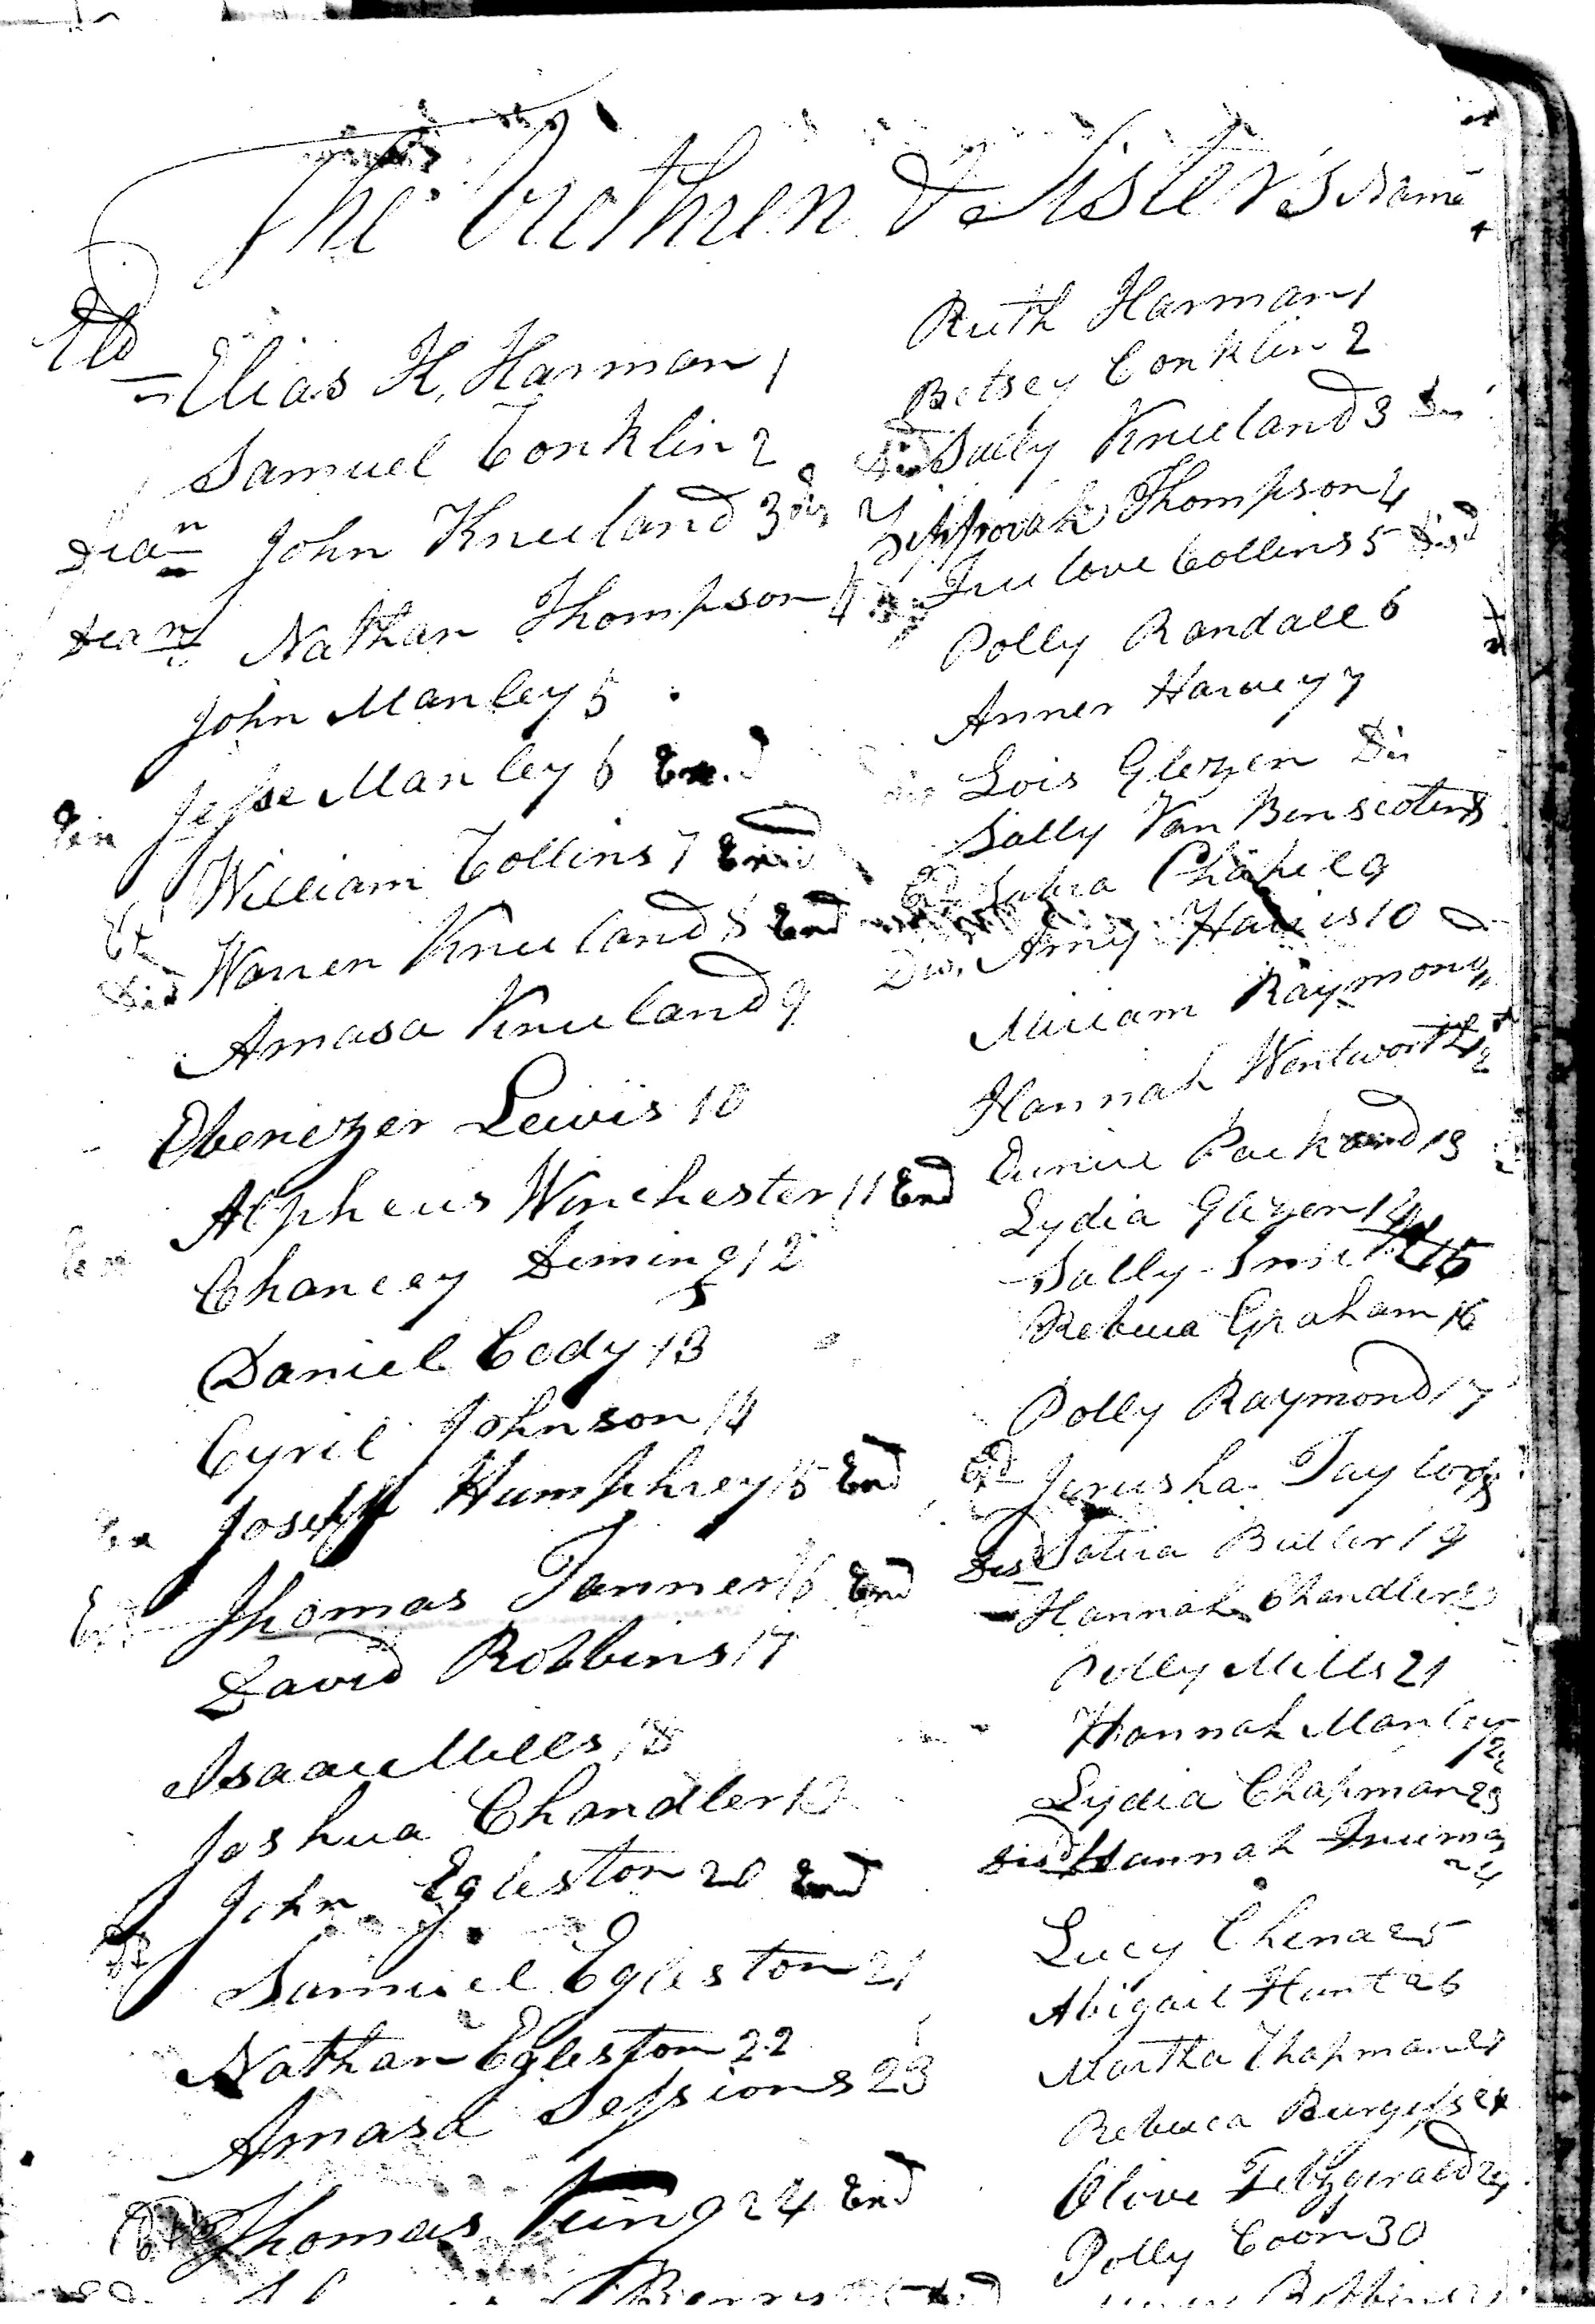 The Brethren & Sister's Name
Eld Elias H. Harman 1
Samuel Conklin 2
Dean John Kneeland 3 dis
Dean Nathan Thompson 4
John Manley 5
Jesse Manley 6 Exd
William Collins 7 End
Warren Kneeland 8 End
Amasa Kneeland 9
Ebenezer Lewis 10
Alpheus Winchester 11 End
Chancey Deming 12
Daniel Cody 13
Cyril Johnson 14
Ex Joseph Humphrey 15 End
Thomas Tanner 16 End
David Robbins 17
Isaac Mills 18
Joshua Chandler 19
John Egleston 20 End
Samuel Egleston 21
Nathan Egleston 22
Amasa Sessions 23
Thomas King 24 End
Ruth Harman 1
Betsey Conklin 2
Did Sally Kneeland 3
Zipporah Thompson 4
Freelove Collins 5 Disd
Polly Randall 6
Anner Harvey 7
Lois Glezen Dis
Sally Van Benscoten 8
9
Dis. Amy Harris 10
Miriam Raymond 11
Hannah Wentworth 12
Eunice Packard 13
Lydia Glezen 14
Sally Smith 15
Rebecca Graham 16
Polly Raymond 17
Jerusha Taylor 18
Disd Butler 19
Hannah Chandler 20
Polly Mills 21
Hannah Manley 22
Lydia Chapman 23
Disd Hannah Truman 24
Lucy 25
Abigail Hunt 26
Martha Chapman 27
Rebecca Burgess 28
Olive Fitzgerald 29
Polly Coon 30